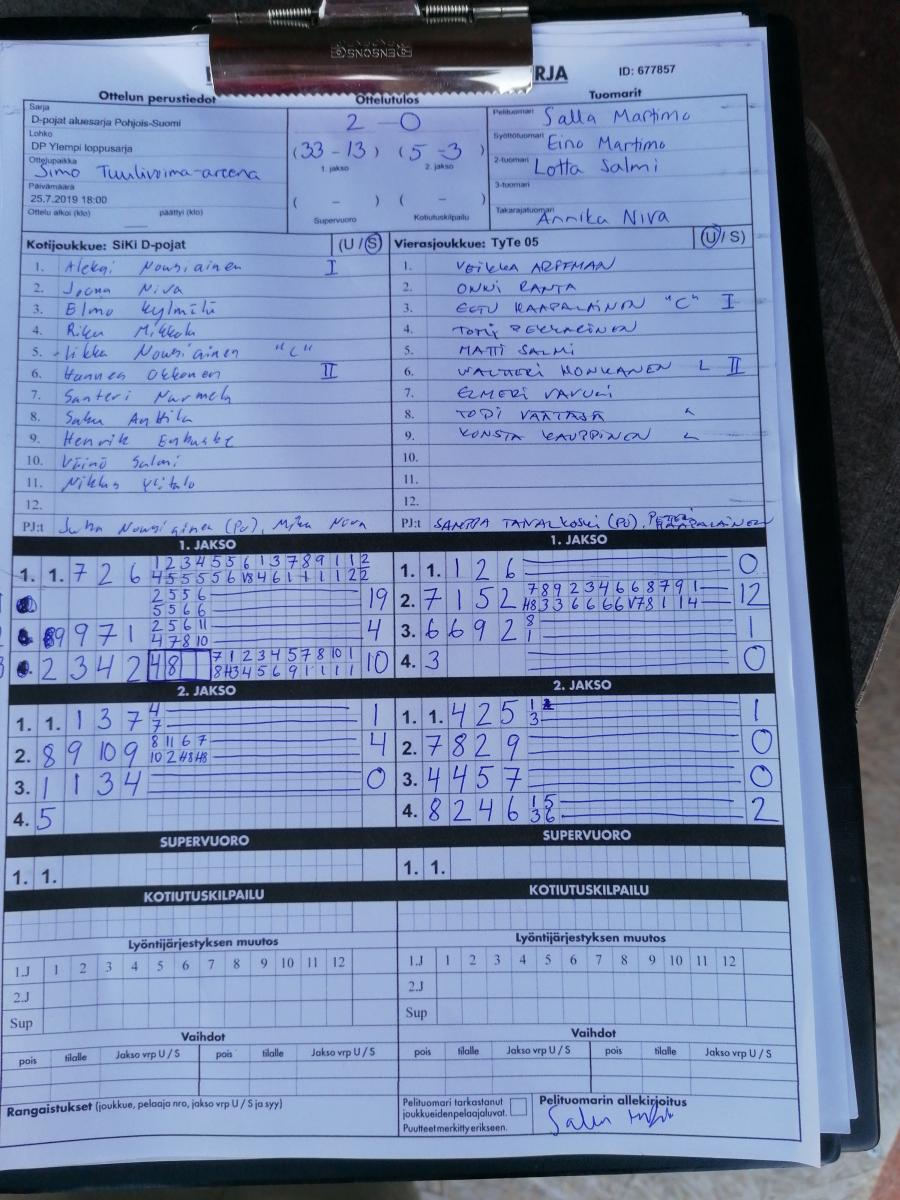 RJA ID: 677857
Ottelun perustiedot
Sarja
D-pojat aluesarja Pohjois-Suomi
Lohko
DP Ylempi loppusarja
Ottelupaikka
Simo Tuulivoima-areena
Päivämäärä
25.7.2019 18:00
Ottelu alkoi (klo) päättyi (klo)
Ottelutulos
2 - 0
(33 - 13) (5 - 3)
1. jakso 2. jakso
( - ) ( - )
Supervuoro Kotiutuskilpailu
Tuomarit
Pelituomari Salla Martimo
Syöttötuomari Eino Martimo
2-tuomari Lotta Salmi
3-tuomari
Takarajatuomari Annika Niva
Kotijoukkue: SiKi D-pojat (U / S)
1. Aleksi Nousiainen I
2. Joona Niva
3. Elmo Kylmälä
4. Riku Mikkola
5. Iikka Nousiainen "C"
6. Hannes Okkonen II
7. Santeri Nurmela
8. Saku Anttila
9. Henrik
10. Väinö Salmi
11. Niklas Ylitalo
12.
PJ:t Juha Nousiainen (PJ), Mika Niva
Vierasjoukkue: TyTe 05 (U / S)
1. VEIKKA
2. ONNI RANTA
3. EETU KAAPALAINEN "C" I
4. TOMI PEKKARINEN
5. MATTI SALMI
6. VALTTERI HONKANEN L II
7. ELMERI
8. TOPI VÄÄTÄJÄ L
9. KONSTA KAUPPINEN L
10.
11.
12.
PJ:t SANTRA TANALKOSKI (PJ),
1. JAKSO
1. 1. 7 2 6
1 2 3 4 5 5 6 1 3 7 8 9 1 1 2
2 5 5 6 19
5 5 6 6
9 7 1 2 5 6 11 4
4 7 8 10
2 3 4 2 48 7 1 2 3 4 5 7 8 10 1 10
1. JAKSO
1. 1. 1 2 6 0
2. 7 1 5 2 7 8 9 2 3 4 6 6 8 7 9 1 12
3. 6 6 9 2 8 1
1
4. 3 0
2. JAKSO
1. 1. 1 3 7 4 1
7
2. 8 9 10 9 8 11 6 7 4
10 2 48 48
3. 1 1 3 4 0
4. 5
2. JAKSO
1. 1. 4 2 5 1 1
3
2. 7 8 2 9 0
3. 4 4 5 7 0
4. 8 2 4 6 1 5 2
3 6
SUPERVUORO
1. 1.
SUPERVUORO
1. 1.
KOTIUTUSKILPAILU
KOTIUTUSKILPAILU
Lyöntijärjestyksen muutos
1.J 1 2 3 4 5 6 7 8 9 10 11 12
2.J
Sup
Lyöntijärjestyksen muutos
1.J 1 2 3 4 5 6 7 8 9 10 11 12
2.J
Sup
Vaihdot
pois tilalle Jakso vrp U / S pois tilalle Jakso vrp U / S
Vaihdot
pois tilalle Jakso vrp U / S pois tilalle Jakso vrp U / S
Rangaistukset (joukkue, pelaaja nro, jakso vrp U / S ja syy)
Pelituomari tarkastanut
joukkueidenpelaajaluvat.
Puutteet merkitty erikseen.
Pelituomarin allekirjoitus